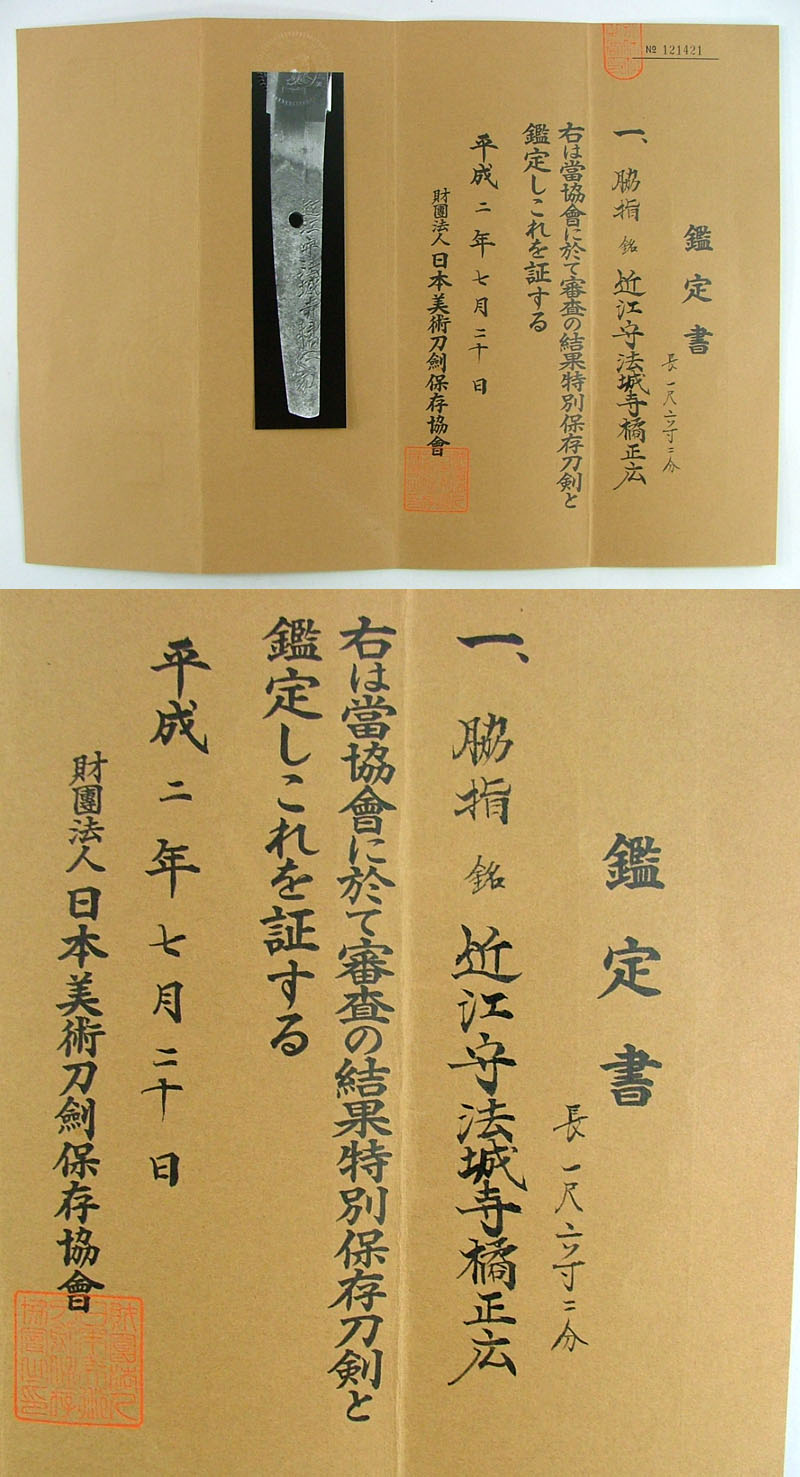 № 121421
鑑定書
長一尺六寸二分
一、脇指 銘 近江守法城寺橘正広
右は當協會に於て審査の結果特別保存刀剣と
鑑定しこれを証する
平成二年七月二十日
財團法人日本美術刀劍保存協會
鑑定書
長一尺六寸二分
一、脇指 銘 近江守法城寺橘正広
右は當協會に於て審査の結果特別保存刀剣と
鑑定しこれを証する
平成二年七月二十日
財團法人日本美術刀劍保存協會